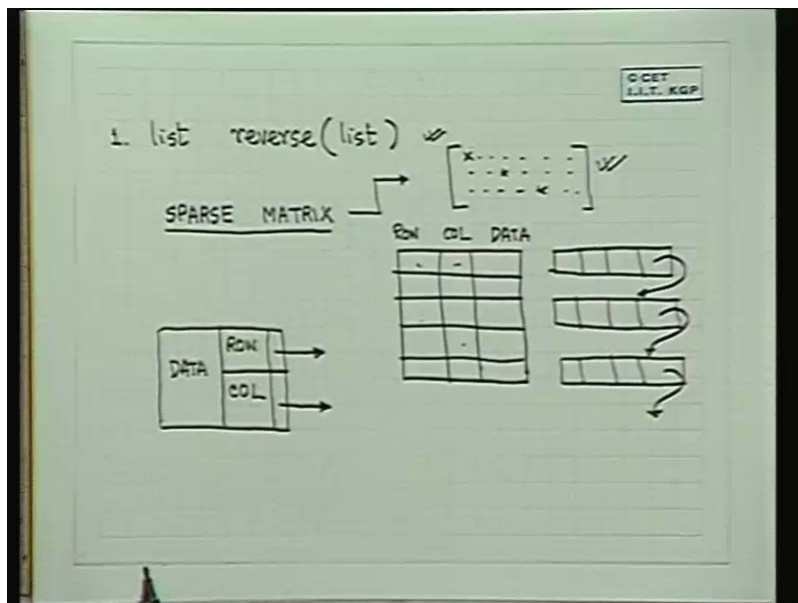 © CET
I.I.T. KGP
1. list reverse(list)
SPARSE MATRIX
ROW COL DATA
DATA
ROW
COL